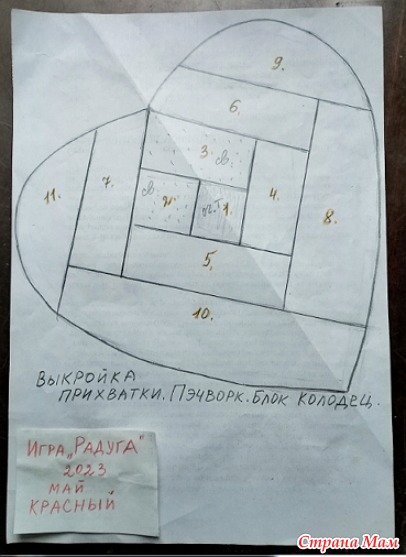 9.
6.
3
св.
11.
7.
4.
8.
св.
2
т.
1.
5.
10.
ВЫКРОЙКА
ПРИХВАТКИ. ПЭЧВОРК. БЛОК КОЛОДЕЦ.
ИГРА „РАДУГА“
2023
МАЙ
КРАСНЫЙ
Страна Мам